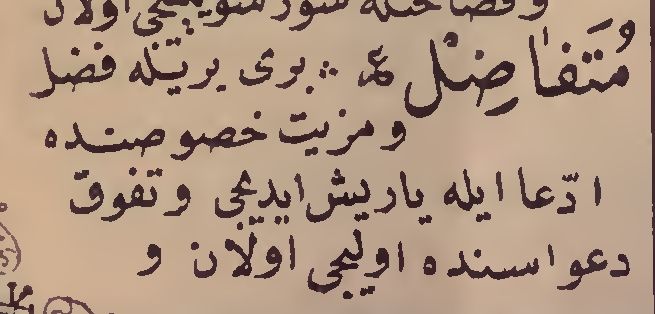 و فصاحتله سوز سويليجى اولان
مُتَفَاضِلْ بربرى بريتله فضل
و مزيت خصوصنده
ادّعا ايله ياريش ايديجى و تفوق
دعواسنده اوليجى اولان و